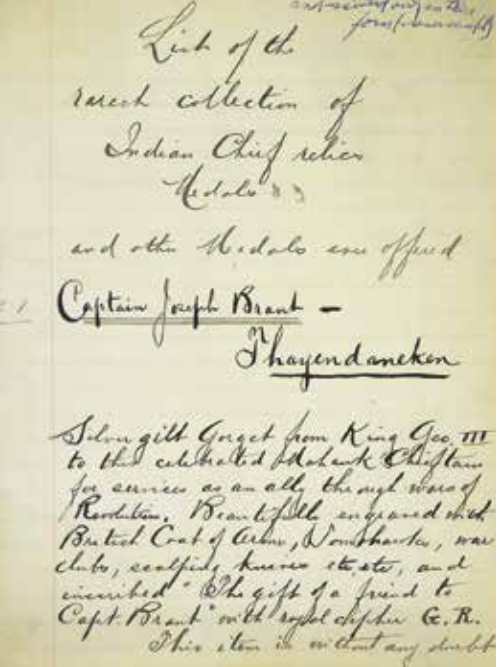 List of the
rarest collection of
Indian Chief relics
Medals
and other Medals ever offered
Captain Joseph Brant -
Thayendaneken
Silver gilt Gorget from King Geo. III
to this celebrated Mohawk Chieftain
for services as an ally through wars of
Revolution. Beautifully engraved with
British Coat of Arms, Tomahawks, war
clubs, scalping knives etc etc, and
inscribed "The gift of a friend to
Capt. Brant" with royal cipher G.R.
This item is without any doubt